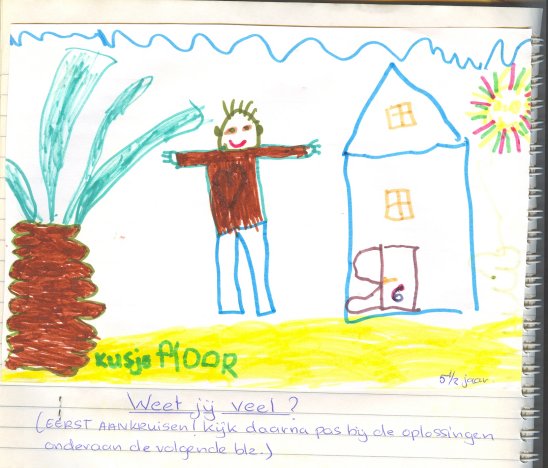 6
kusje flOOR
5 1/2 jaar
Weet jij veel?
(EERST AANKRUISEN! kijk daarna pas bij de oplossingen
onderaan de volgende blz.)